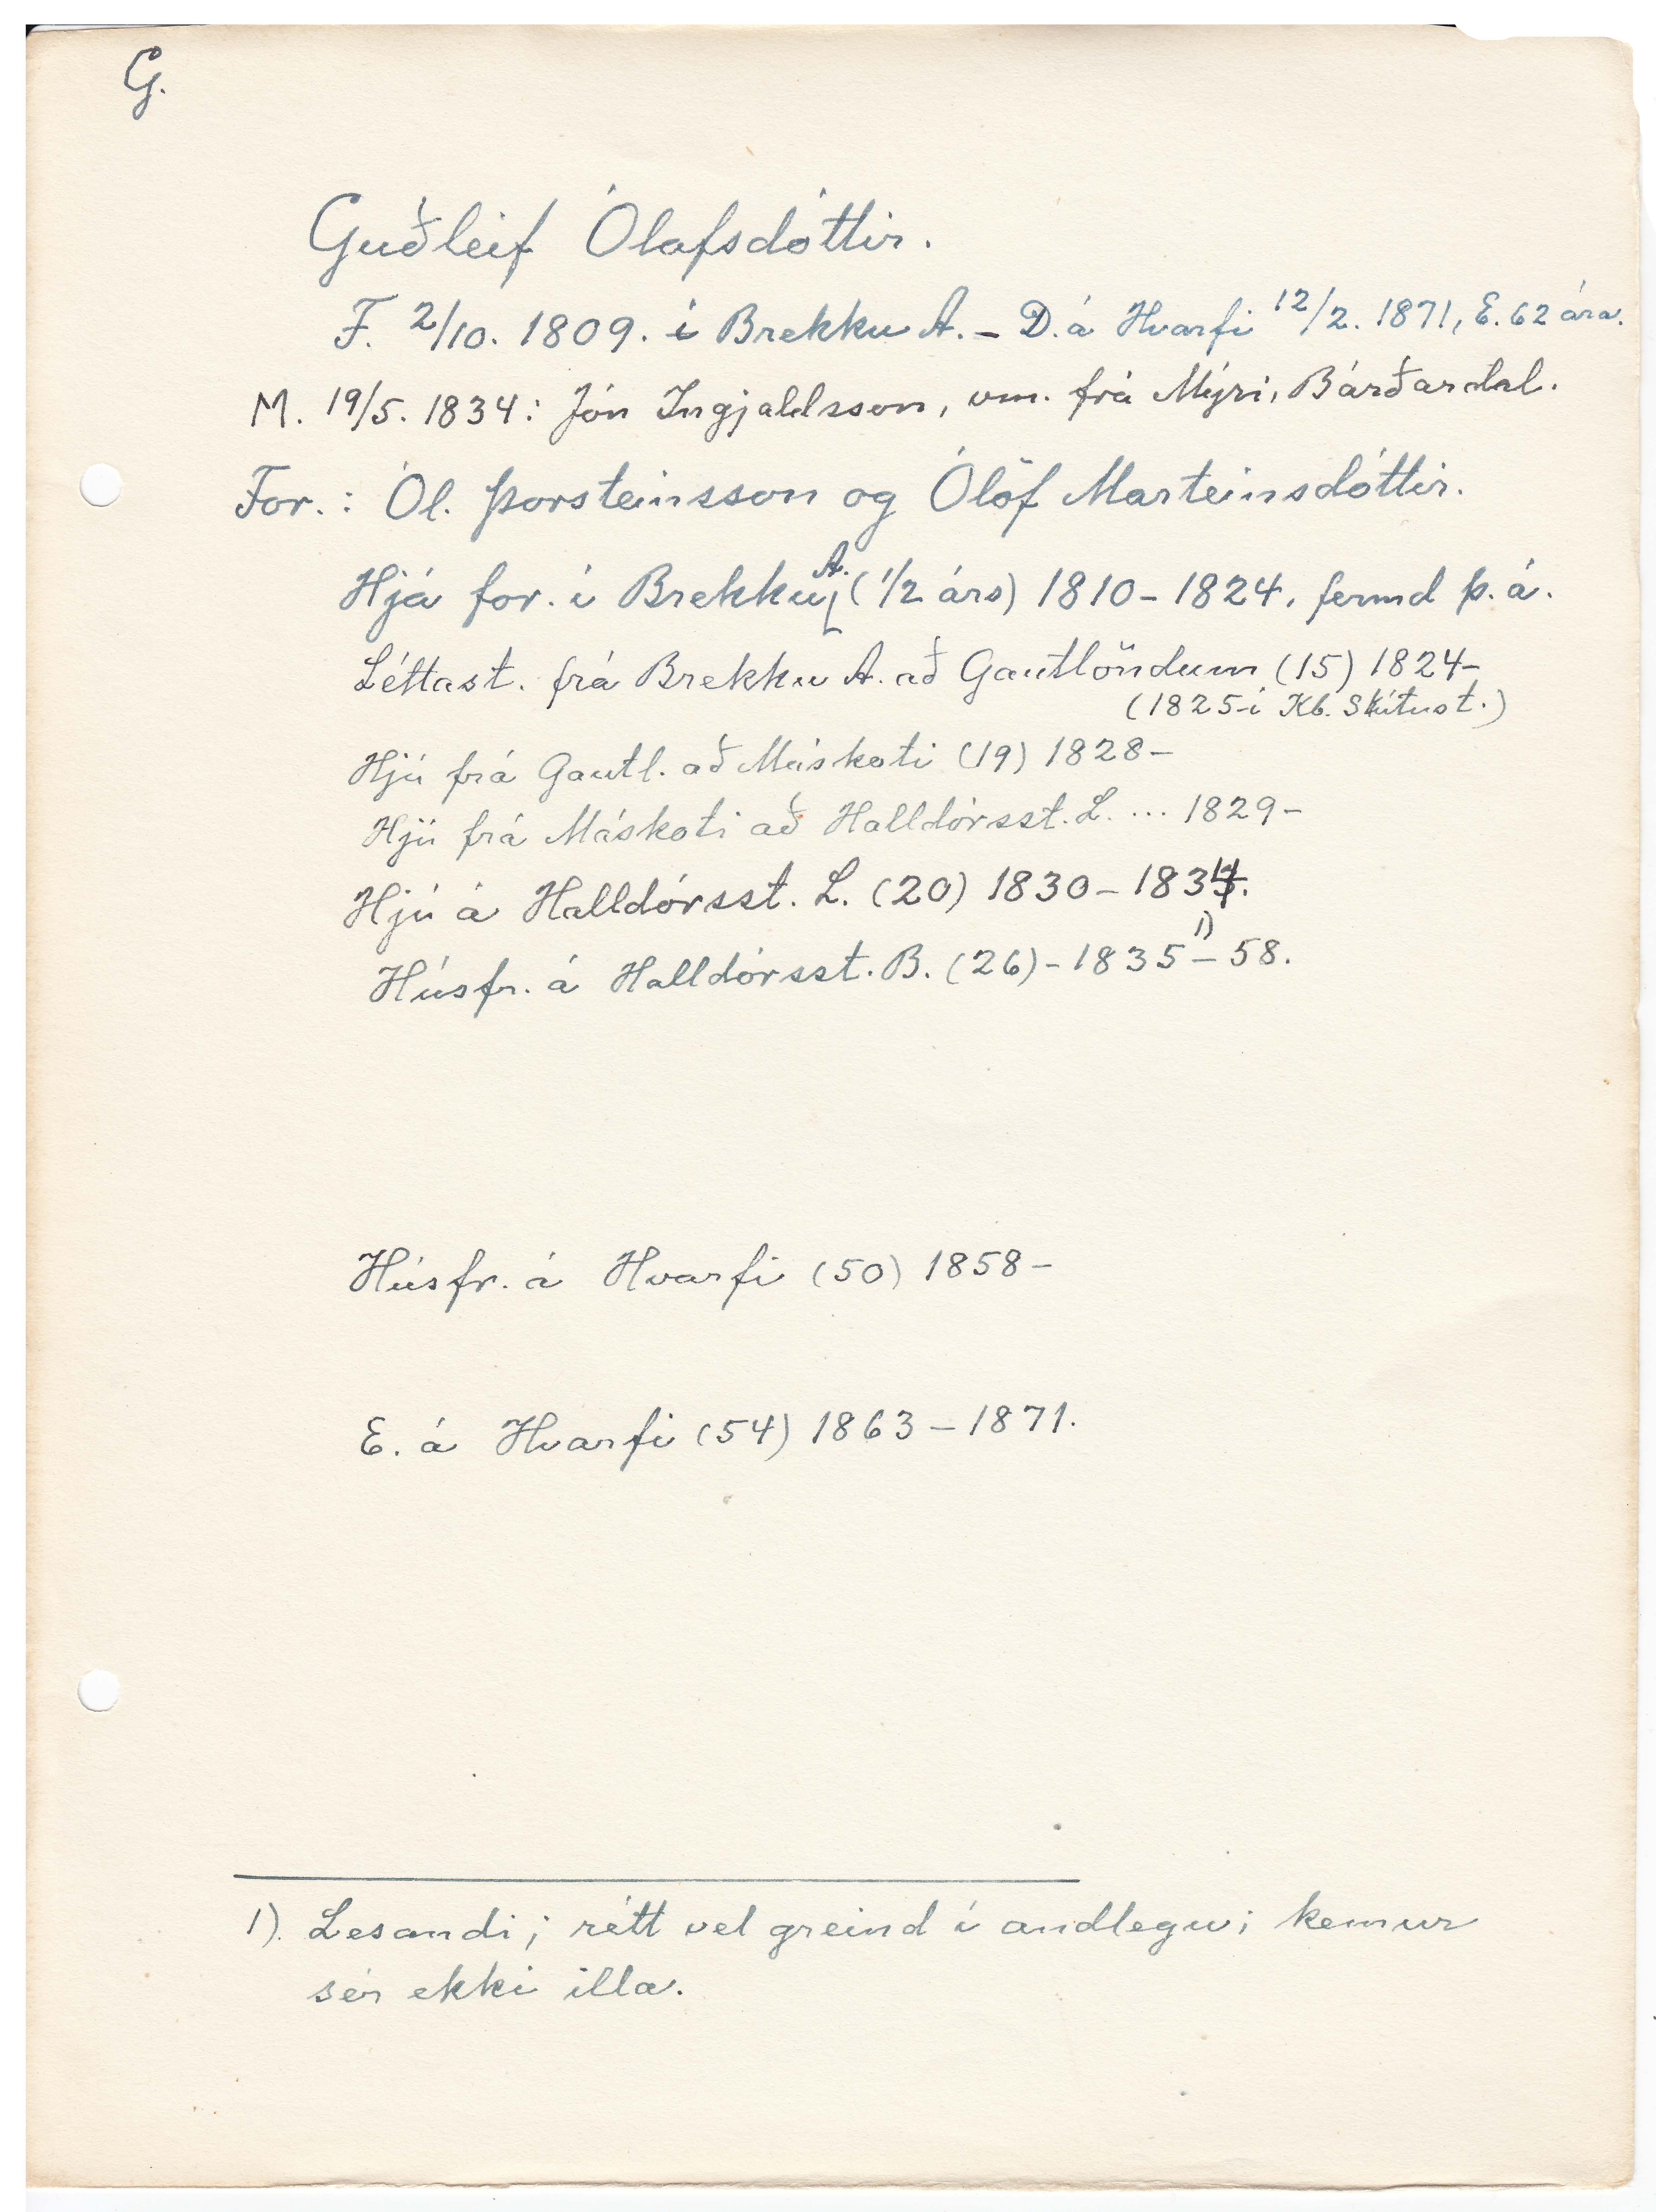 G.
Guðleif Ólafsdóttir.
F. 2/10. 1809. í Brekku A. – D. á Hvarfi 12/2. 1871, E. 62 ára.
M. 19/5. 1834: Jón Ingjaldsson, vm. frá Mýri, Bárðardal.
For.: Ól. Þorsteinsson og Ólöf Marteinsdóttir.
Hjá for. í Brekku A. (1/2 árs) 1810 – 1824, fermd þ. á.
Léttast. frá Brekku A. að Gautlöndum (15) 1824 –
(1825 – í Kb. Skútust.)
Hjú frá Gautl. að Máskoti (19) 1828 –
Hjú frá Máskoti að Halldórsst. L. ... 1829 –
Hjú á Halldórsst. L. (20) 1830 – 1834.
Húsfr. á Halldórsst. B. (26) – 1835 1) – 58.
Húsfr. á Hvarfi (50) 1858 –
E. á Hvarfi (54) 1863 – 1871.
1). Lesandi; rétt vel greind í andlegu; kemur
sér ekki illa.